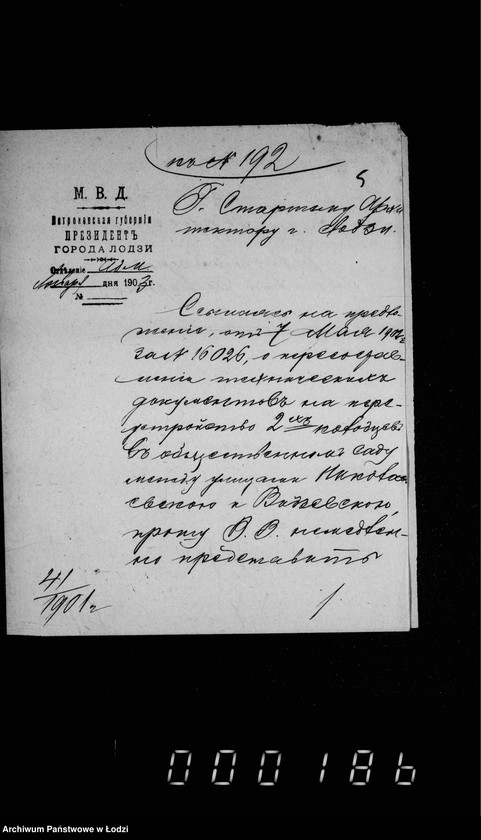 по № 192
5
М. В. Д.
Петроковская губернія
ПРЕЗИДЕНТЪ
ГОРОДА ЛОДЗИ
Отдѣленіе Адм
Января дня 1903 г.
№
Г. Старшему Архи
тектору г. Лодзи.
Ссылаясь на предло-
женіе, отъ 7 Мая 1902 г.
за № 16026, о пересостав-
леніи техническихъ
документовъ на пере-
устройство 2хъ колодцевъ
въ общественномъ саду
между улицами Никола-
евскою и Видзевскою,
прошу В. В. немедлен-
но представить
41/1901 г
1
000186
Archiwum Państwowe w Łodzi